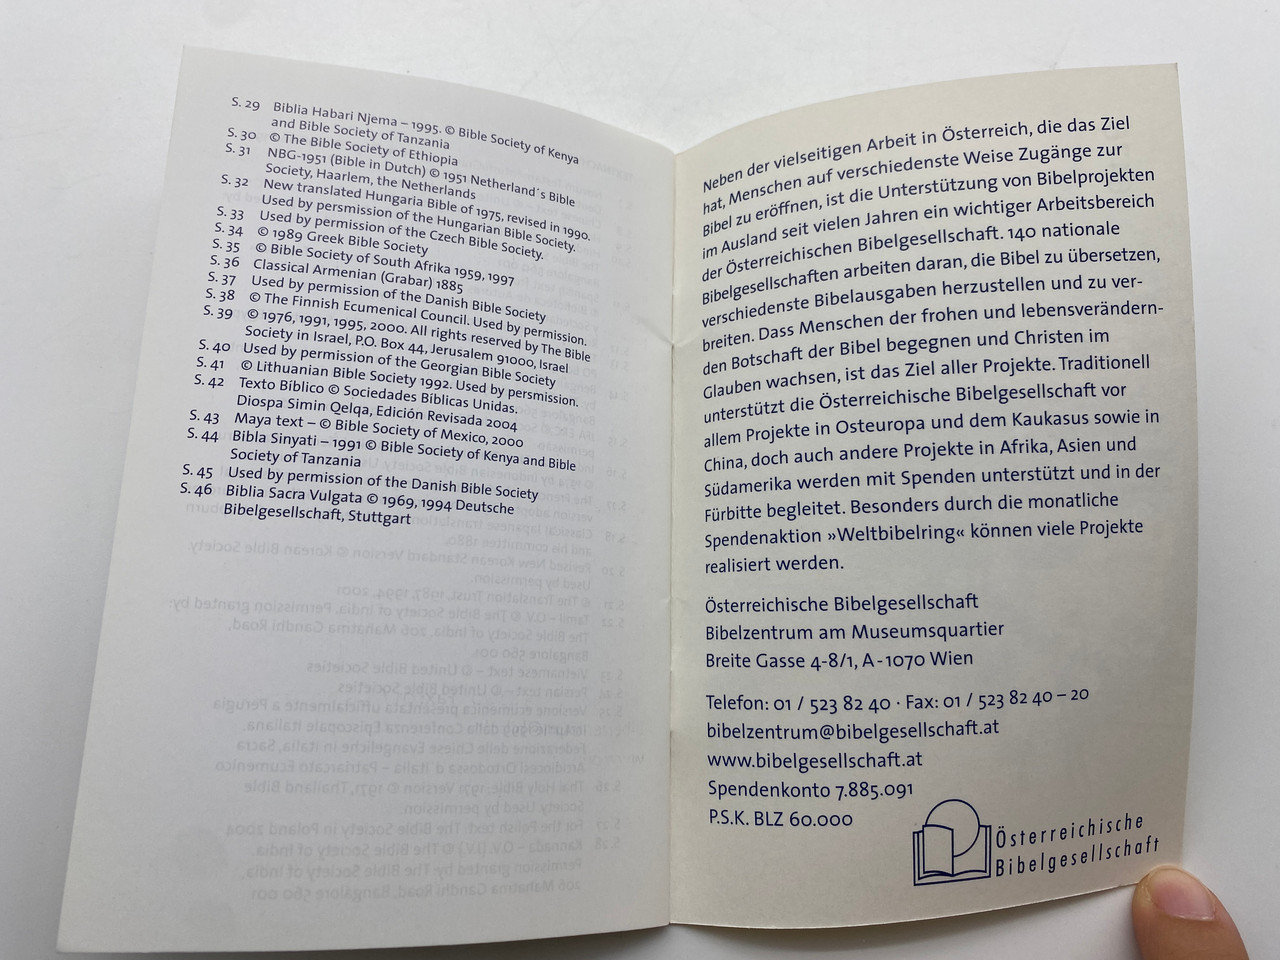 S. 29 Biblia Habari Njema – 1995. © Bible Society of Kenya
and Bible Society of Tanzania
S. 30 © The Bible Society of Ethiopia
S. 31 NBG-1951 (Bible in Dutch) © 1951 Netherland´s Bible
Society, Haarlem, the Netherlands
S. 32 New translated Hungaria Bible of 1975, revised in 1990.
Used by persmission of the Hungarian Bible Society.
S. 33 Used by permission of the Czech Bible Society.
S. 34 © 1989 Greek Bible Society
S. 35 © Bible Society of South Afrika 1959, 1997
S. 36 Classical Armenian (Grabar) 1885
S. 37 Used by permission of the Danish Bible Society
S. 38 © The Finnish Ecumenical Council. Used by permission.
S. 39 © 1976, 1991, 1995, 2000. All rights reserved by The Bible
Society in Israel, P.O. Box 44, Jerusalem 91000, Israel
S. 40 Used by permission of the Georgian Bible Society
S. 41 © Lithuanian Bible Society 1992. Used by persmission.
S. 42 Texto Bíblico © Sociedades Bíblicas Unidas.
Diospa Simin Qelqa, Edición Revisada 2004
S. 43 Maya text – © Bible Society of Mexico, 2000
S. 44 Bibla Sinyati – 1991 © Bible Society of Kenya and Bible
Society of Tanzania
S. 45 Used by permission of the Danish Bible Society
S. 46 Biblia Sacra Vulgata © 1969, 1994 Deutsche
Bibelgesellschaft, Stuttgart
Neben der vielseitigen Arbeit in Österreich, die das Ziel
hat, Menschen auf verschiedenste Weise Zugänge zur
Bibel zu eröffnen, ist die Unterstützung von Bibelprojekten
im Ausland seit vielen Jahren ein wichtiger Arbeitsbereich
der Österreichischen Bibelgesellschaft. 140 nationale
Bibelgesellschaften arbeiten daran, die Bibel zu übersetzen,
verschiedenste Bibelausgaben herzustellen und zu ver-
breiten. Dass Menschen der frohen und lebensverändern-
den Botschaft der Bibel begegnen und Christen im
Glauben wachsen, ist das Ziel aller Projekte. Traditionell
unterstützt die Österreichische Bibelgesellschaft vor
allem Projekte in Osteuropa und dem Kaukasus sowie in
China, doch auch andere Projekte in Afrika, Asien und
Südamerika werden mit Spenden unterstützt und in der
Fürbitte begleitet. Besonders durch die monatliche
Spendenaktion »Weltbibelring« können viele Projekte
realisiert werden.
Österreichische Bibelgesellschaft
Bibelzentrum am Museumsquartier
Breite Gasse 4-8/1, A-1070 Wien
Telefon: 01 / 523 82 40 · Fax: 01 / 523 82 40 – 20
bibelzentrum@bibelgesellschaft.at
www.bibelgesellschaft.at
Spendenkonto 7.885.091
P.S.K. BLZ 60.000
Österreichische
Bibelgesellschaft